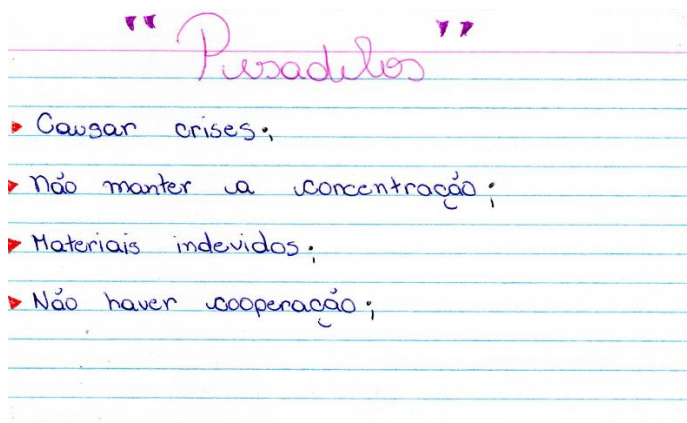 "Pesadelos"
Causar crises;
Não manter a concentração;
Materiais indevidos;
Não haver cooperação;